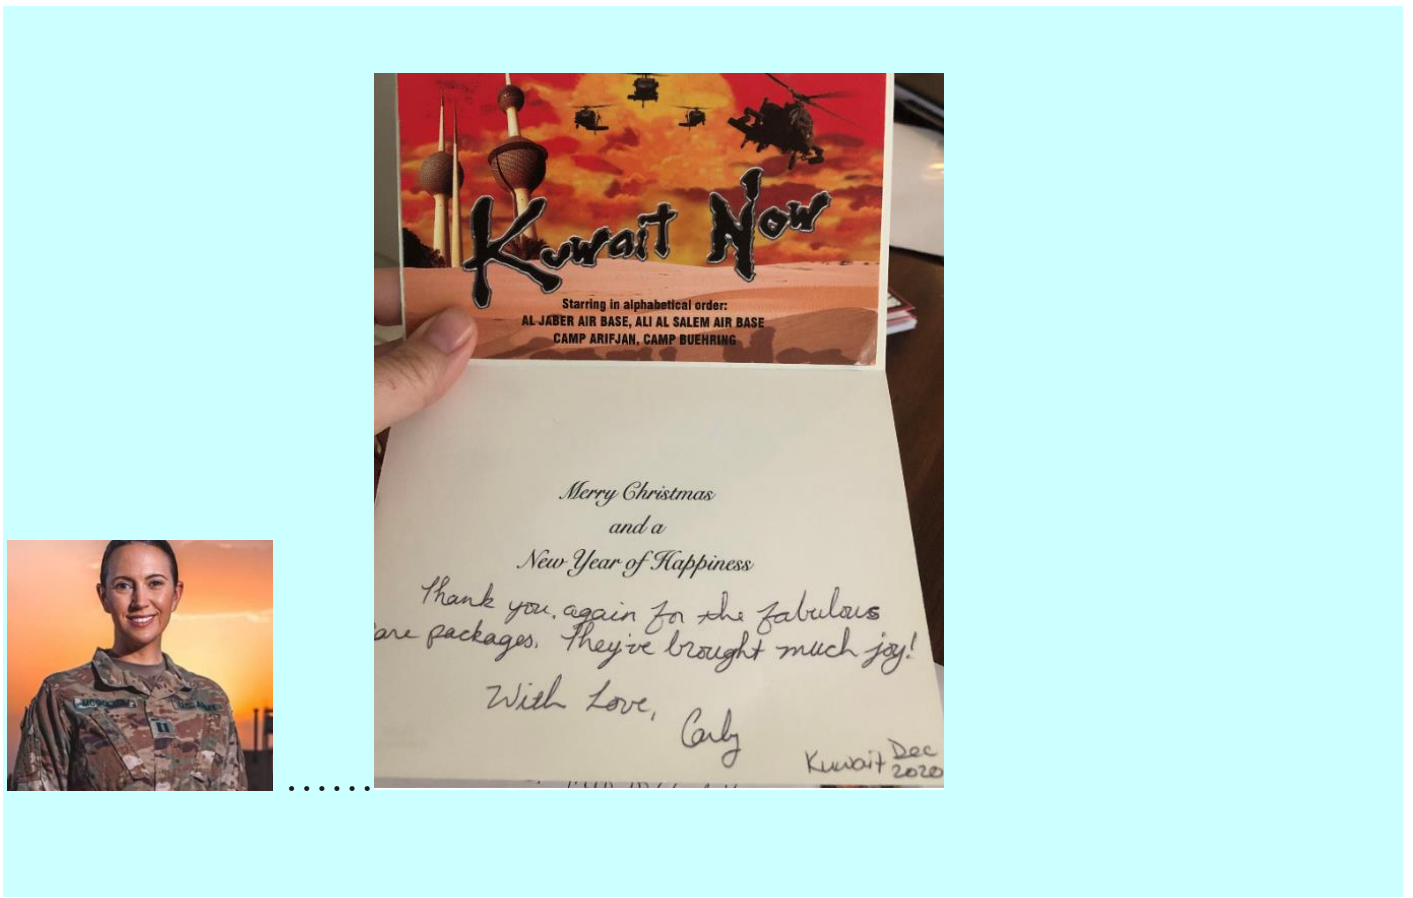 Kuwait Now
Starring in alphabetical order:
AL JABER AIR BASE, ALI AL SALEM AIR BASE
CAMP ARIFJAN, CAMP BUEHRING
Merry Christmas
and a
New Year of Happiness
Thank you again for the fabulous
are packages. They've brought much joy!
With Love,
Carly
Kuwait Dec
2020
......